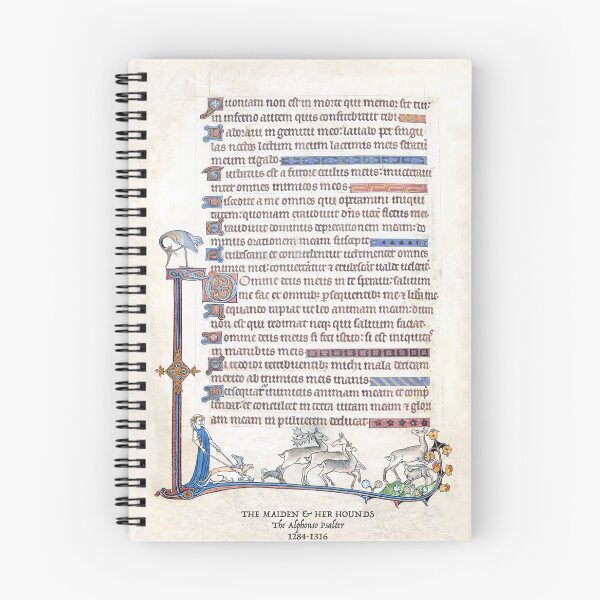 Quoniam non est in morte qui memor sit tui:
in inferno autem quis confitebitur tibi
Laboraui in gemitu meo: lauabo per singu
las noctes lectum meum lacrimis meis stratum
meum rigabo
Turbatus est a furore oculus meus: inueteraui
inter omnes inimicos meos
Discedite a me omnes qui operamini iniqui
tatem: quoniam exaudiuit dns uocem fletus mei
Exaudiuit dominus deprecationem meam: do
minus orationem meam suscepit
Erubescant et conturbentur uehementer omnes
inimici mei: conuertantur et erubescant ualde uelociter
Domine deus meus in te speraui: saluum
me fac et omnibꝫ persequentibꝫ me et libera me
Nequando rapiat ut leo animam meam: dum
non est qui redimat neqꝫ qui saluum faciat
Domine deus meus si feci istud: si est iniquitas
in manibus meis
Si reddidi retribuentibꝫ michi mala decidam
merito ab inimicis meis inanis
Persequatur inimicus animam meam et comp
hendat: et conculcet in terra uitam meam et glori
am meam in puluerem deducat
THE MAIDEN & HER HOUNDS
The Alphonso Psalter
1284-1316